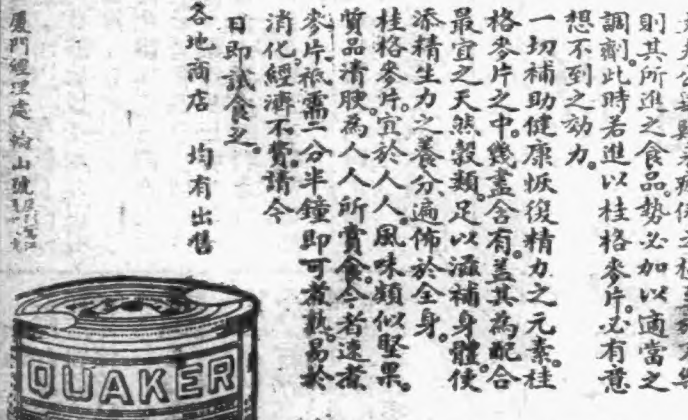 則其所進之食品。勢必加以適當之
調劑。此時若進以桂格麥片。必有意
想不到之効力。
一切補助健康恢復精力之元素。桂
格麥片之中。幾盡含有。蓋其為配合
最宜之天然穀類。足以滋補身體。使
添精生力之養分。遍佈於全身。
桂格麥片。宜於人人。風味類似堅果。
質品清腴。為人人所賞食。今者速煮
麥片。祇需二分半鐘。即可煮熟。易於
消化。經濟不費。請今
日即試食之。
各地商店 均有出售
厦門經理處 輪山號
QUAKER